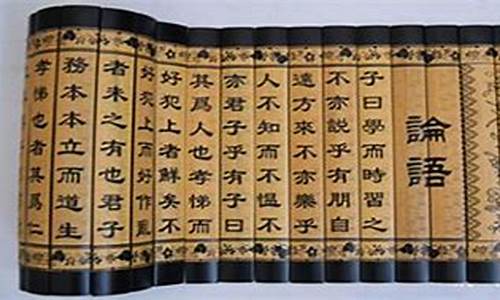 論語
子曰學而時習之
不亦說乎有朋自
遠方來不亦樂乎
人不知而不慍不
亦君子乎有子曰
其爲人也孝悌而
好犯上者鮮矣不
好犯上而好作亂
者未之有也君子
務本本立而道生
孝悌也者其爲仁